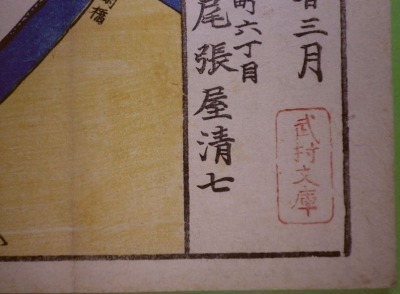 三月
六丁目
尾張屋清七
武村文庫
橋